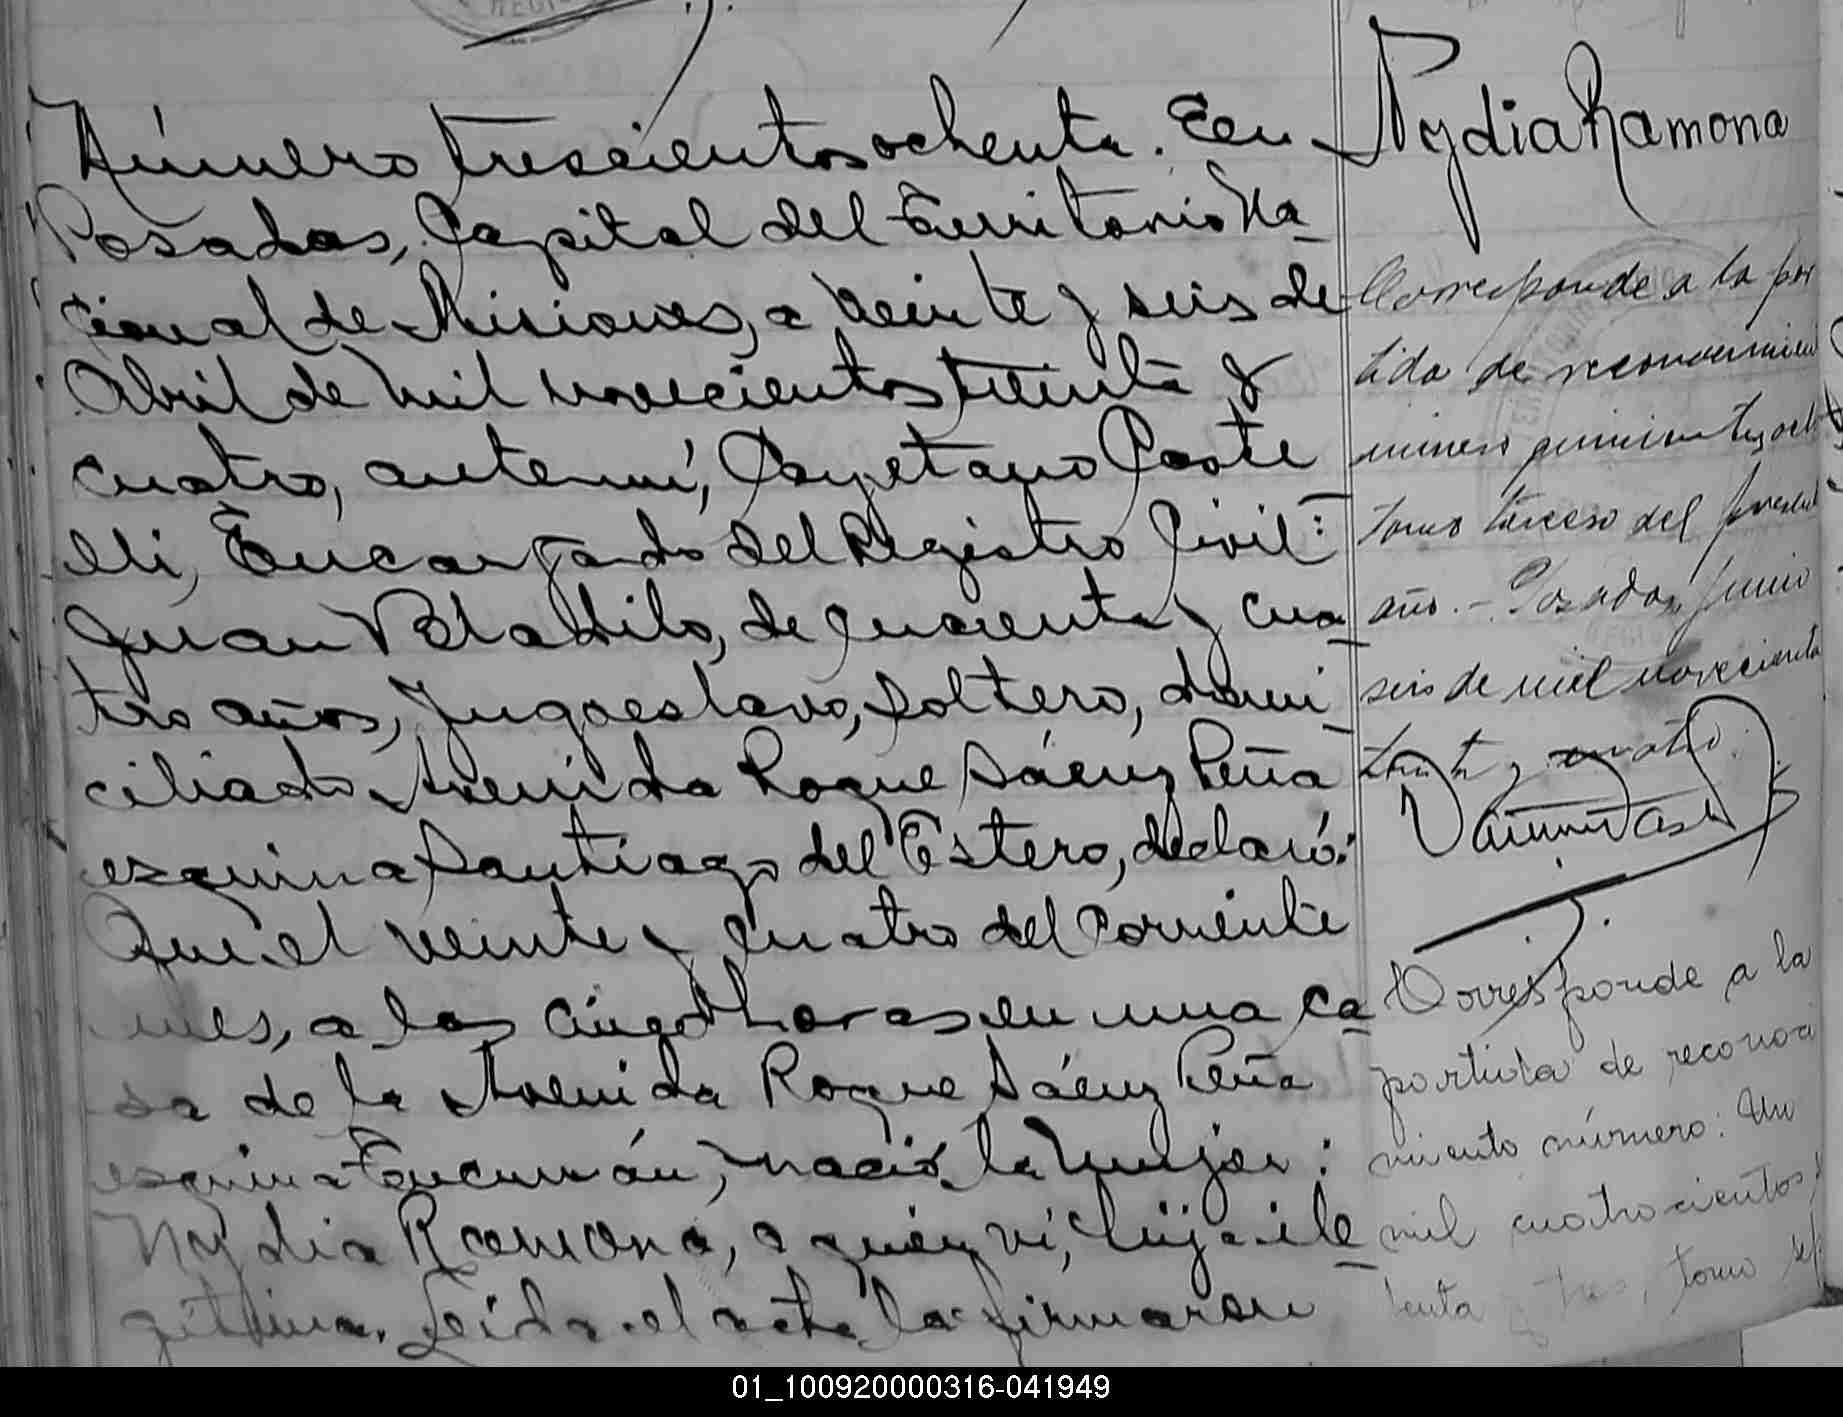 Número trescientos ochenta. En
Posadas, Capital del Territorio Na-
cional de Misiones, a veinte y seis de
Abril de mil novecientos treinta y
cuatro, ante mí, Cayetano Caste-
lli, Encargado del Registro Civil:
Juan Bladilo, de cuarenta y cua-
tro años, Jugoeslavo, soltero, domi-
ciliado Avenida Roque Sáenz Peña
esquina Santiago del Estero, declaró:
Que el veinte y cuatro del corriente
mes, a las cinco horas en una ca-
sa de la Avenida Roque Sáenz Peña
esquina Tucumán, nació la mujer:
Nydia Ramona, a quien vi, hija ile-
gítima. Leída el acta la firmaron
Nydia Ramona
Corresponde a la par
tida de reconocimien
número quinientos och
tomo tercero del present
año. - Posadas, Junio
seis de mil novecientos
treinta y cuatro.
Corresponde a la
partida de reconoci
miento número: Un
mil cuatrocientos
tenta y tres, tomo
01_100920000316-041949